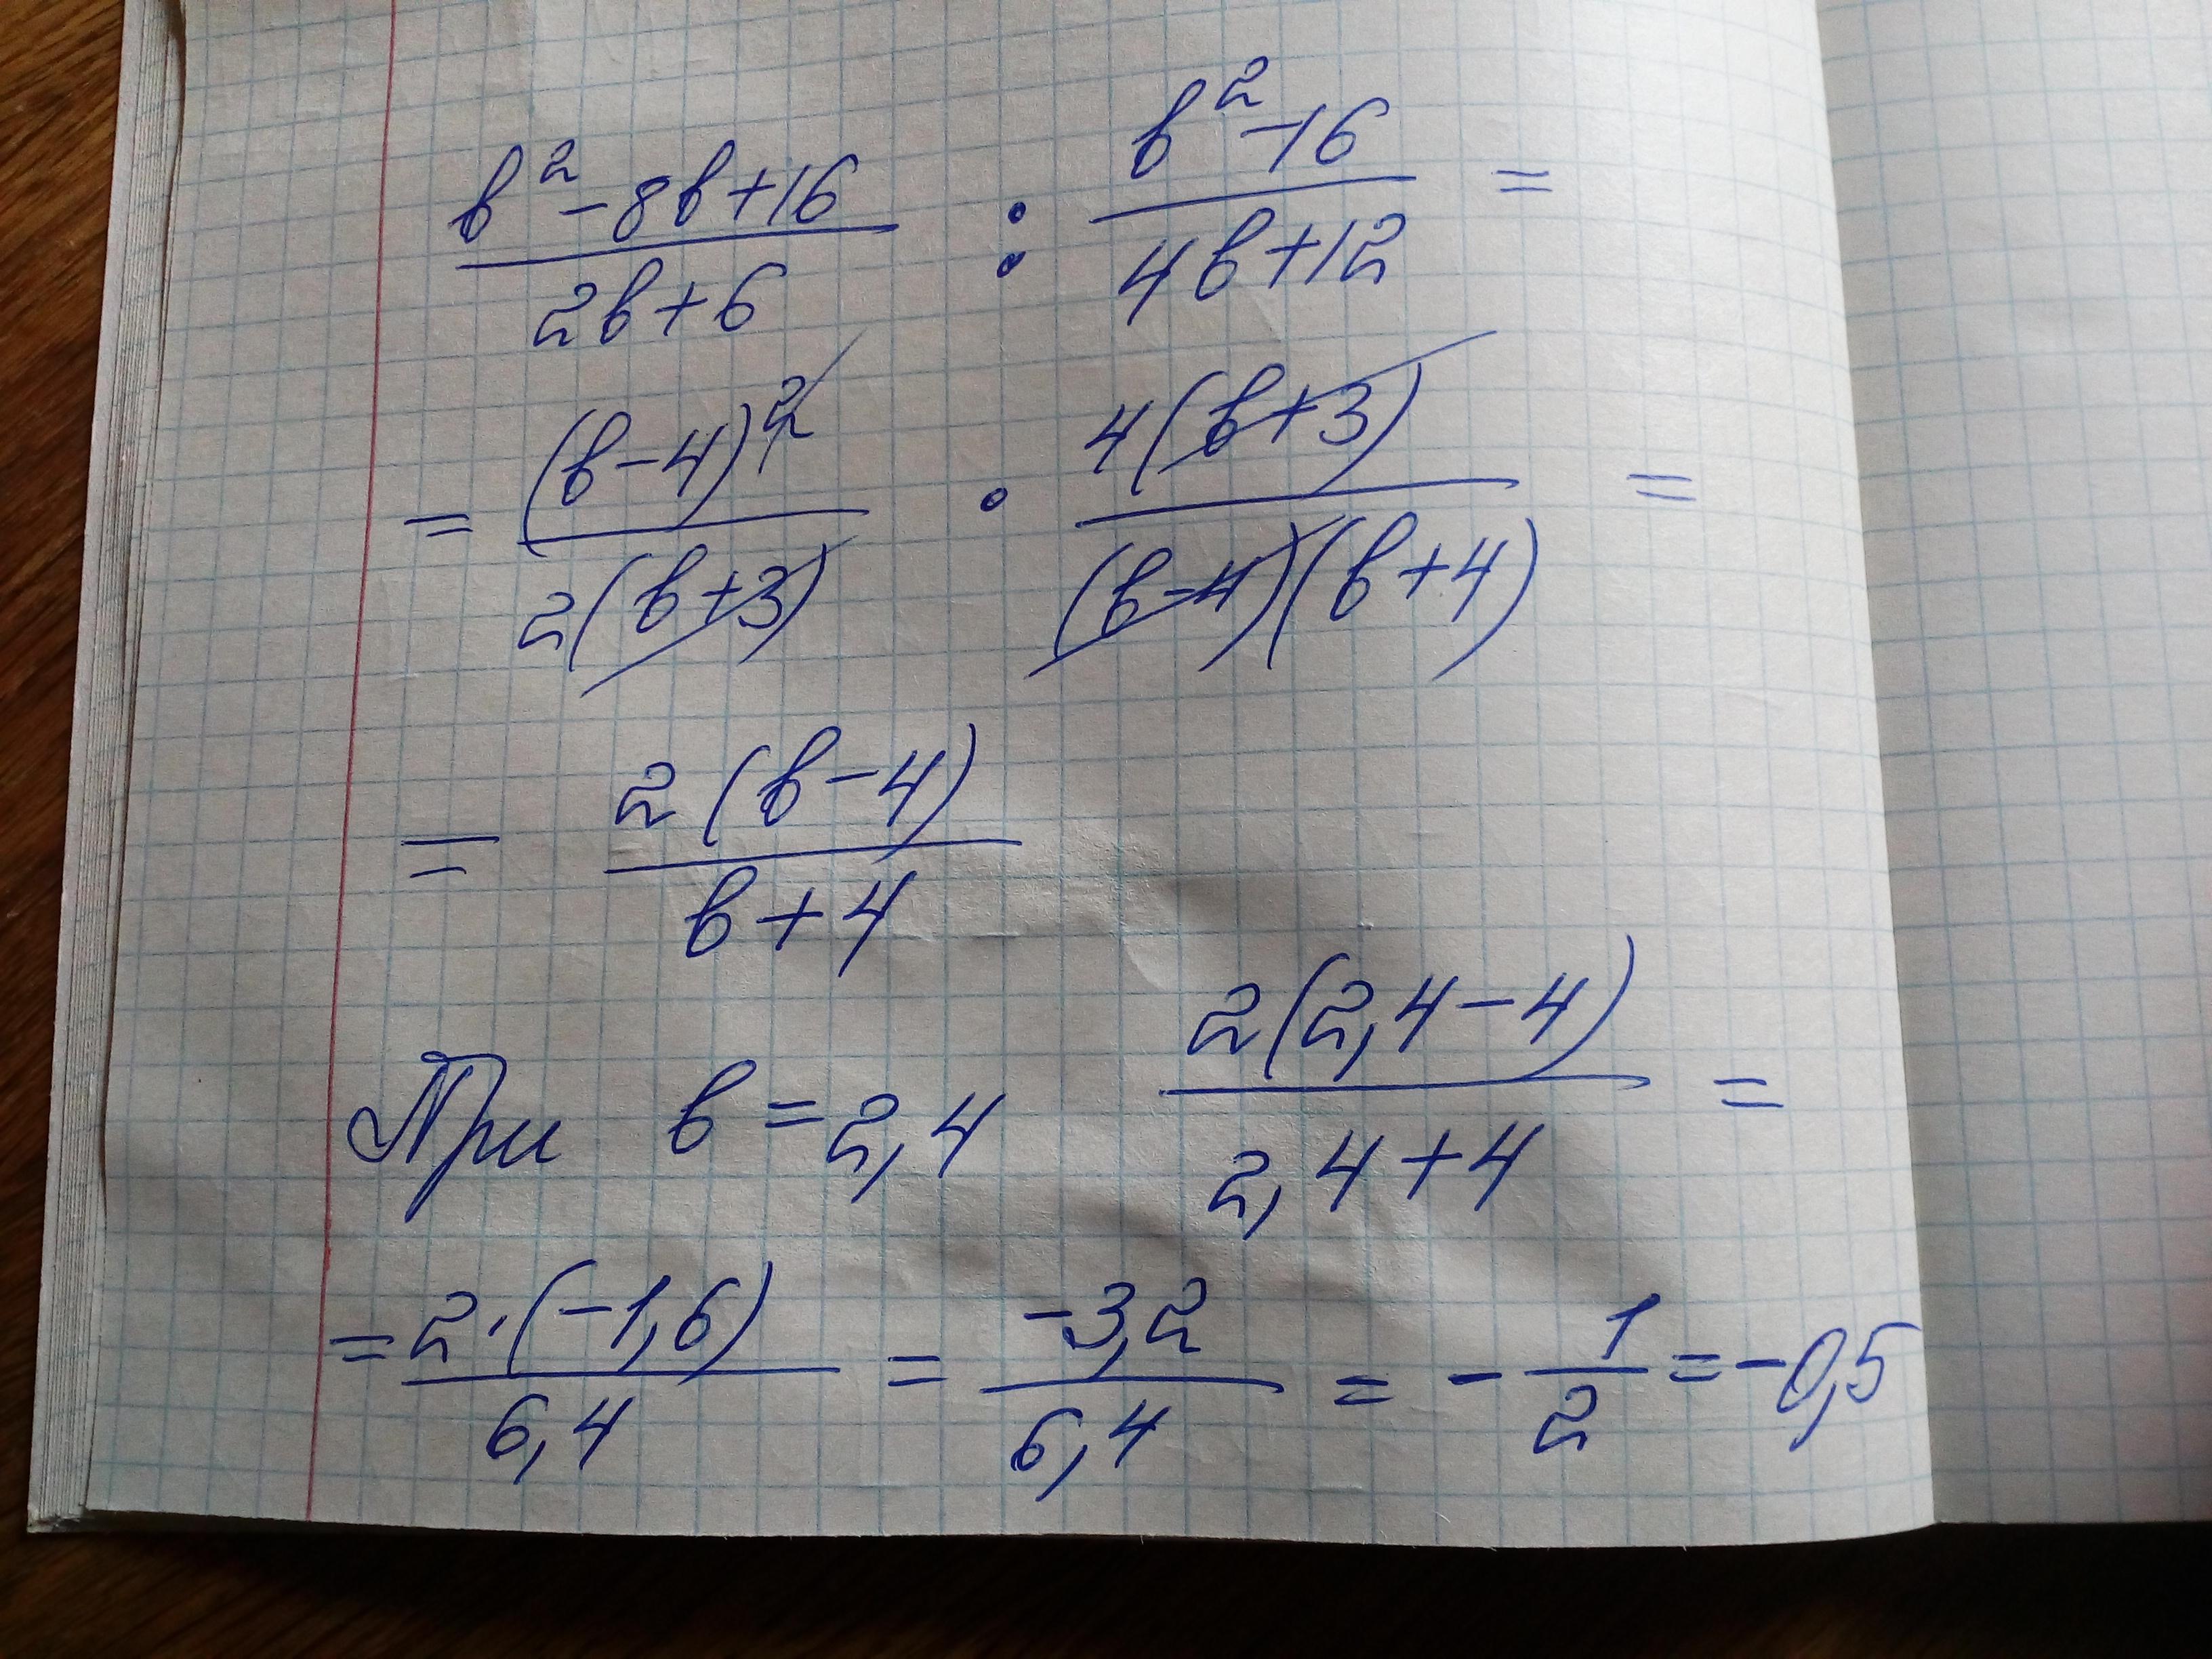 (b² - 8b + 16)/(2b + 6) : (b² - 16)/(4b + 12) =
= (b - 4)²/(2(b + 3)) · 4(b + 3)/((b - 4)(b + 4)) =
= 2(b - 4)/(b + 4)
При b = 2,4 2(2,4 - 4)/(2,4 + 4) =
= 2·(-1,6)/6,4 = -3,2/6,4 = -1/2 = -0,5